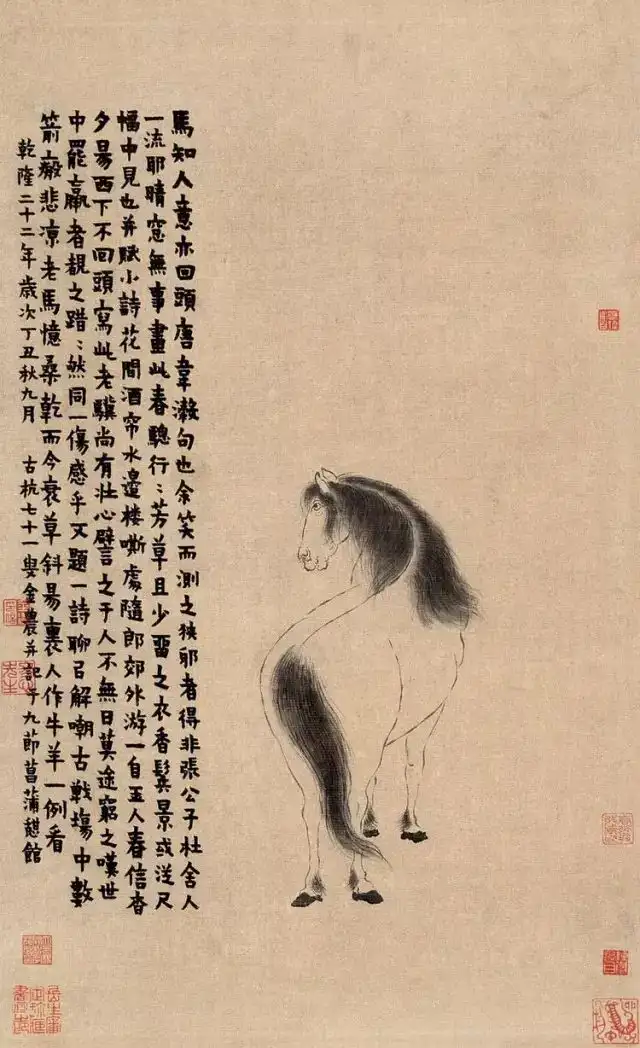 馬知人意亦回頭唐韋瀔句也余笑而測之狹邪者得非張公子杜舍人
一流耶晴窓無事畫此春驄行〻芳草且少畱之衣香鬓景或從尺
幅中見也并賦小詩花間酒帘水邊楼嘶處隨郎郊外游一自玉人春信杳
夕昜西下不回頭寫此老驥尚有壮心譬之于人不無日莫途窮之嘆世
中罷羸者覩之踖〻然同一傷感乎又題一詩聊㠯解嘲古戦塲中數
箭瘢悲凉老馬憶桑乾而今衰草斜昜裏人作牛羊一例看
乾隆二十二年歲次丁丑秋九月 古杭七十一叟金農并記于九節菖蒲憇館